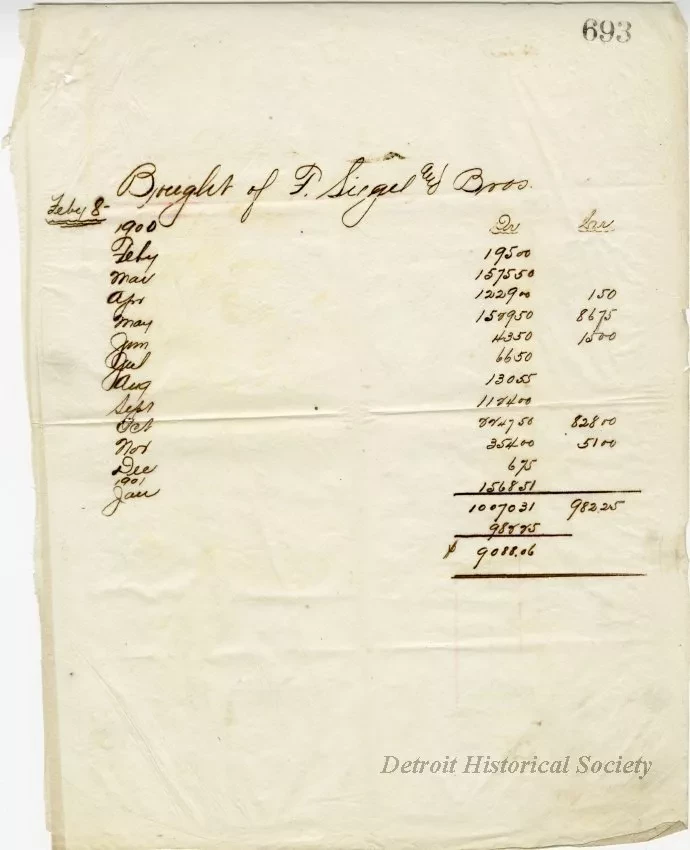 693
Bought of F. Siegel & Bros.
Feby 8-
1900 Dr Cr
Feby 19500
Mar 157550
Apr 122900 150
May 152950 8675
Jun 4350 1500
Jul 6650
Aug 13055
Sept 112400
Oct 224750 82800
Nov 35400 5100
Dec 675
1901
Jan 156851
1007031 982.25
98225
$ 9088.06
Detroit Historical Society